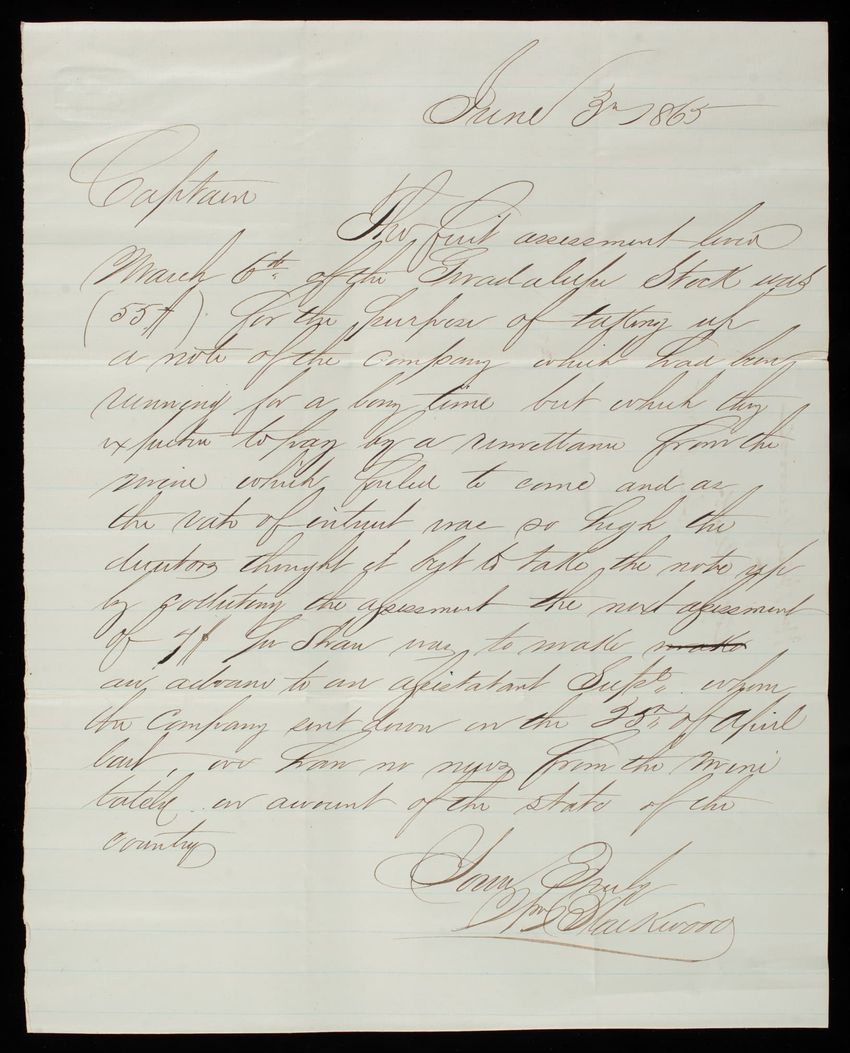 June 3rd 1865
Captain
The first assessment levied
March 6th of the Guadalupe Stock was
(55¢) for the purpose of taking up
a note of the company which had been
running for a long time but which they
expected to pay by a remittance from the
mine which failed to come and as
the rate of interest was so high the
directors thought it best to take the note up
by collecting the assessment the next assessment
of 4¢ per Share was to make
an advance to an assistant Supt. whom
the company sent down on the 25th of April
last, we have no news from the mine
lately on account of the state of the
country
Yours Truly
Wm Blackwood